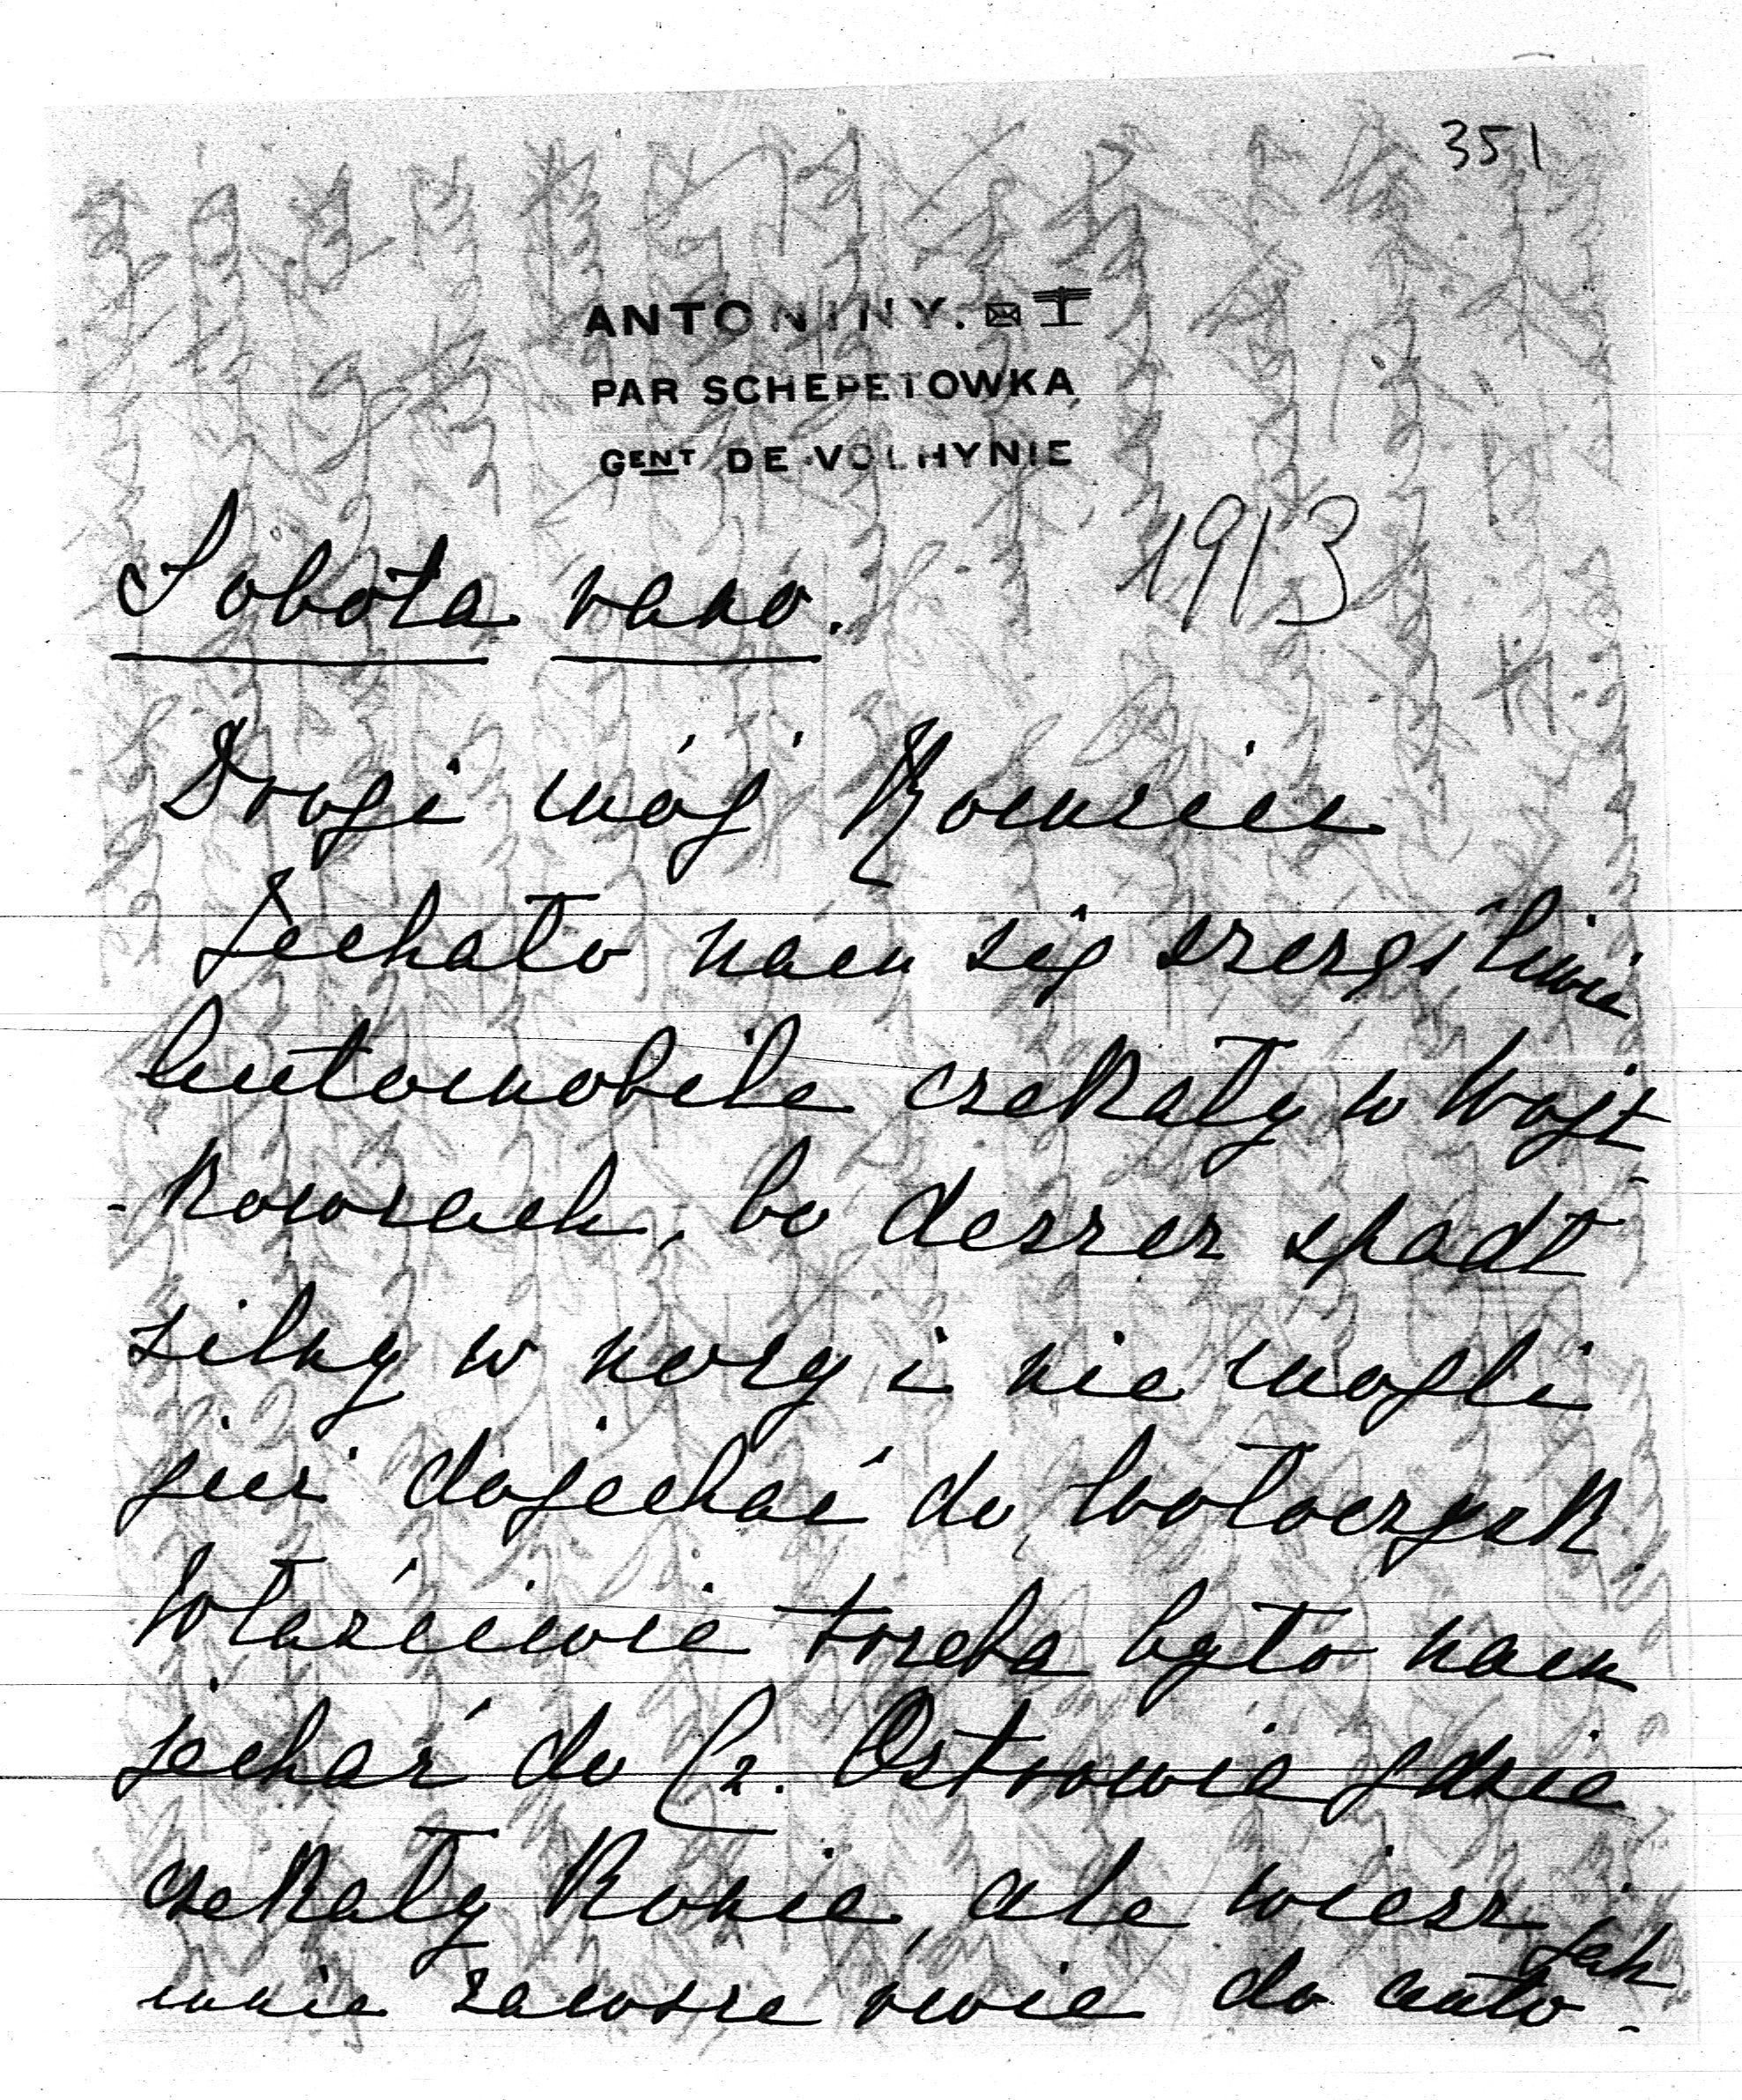 351
ANTONINY.
PAR SCHEPETOWKA
GENT DE VOLHYNIE
Sobota rano.
1913
Drogi mój Romciu
Jechało nam się szczęśliwie
Automobile czekały w Wojt
-kowcach, bo deszcz spadł
silny w nocy i nie mogli
już dojechać do Wołoczysk.
Właściwie trzeba było nam
jechać do Cz. Ostrowia gdzie
czekały konie, ale wiesz jak
mnie zawsze rwie do auto-